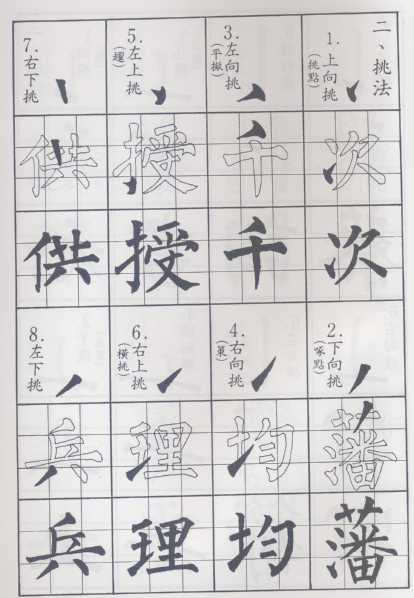 二、挑法
1.上向挑
(挑點)
次
次
3.左向挑
(平撇)
千
千
5.左上挑
(趯)
授
授
7.右下挑
供
供
2.下向挑
(啄點)
藩
藩
4.右向挑
均
均
6.右上挑
(橫挑)
理
理
8.左下挑
兵
兵